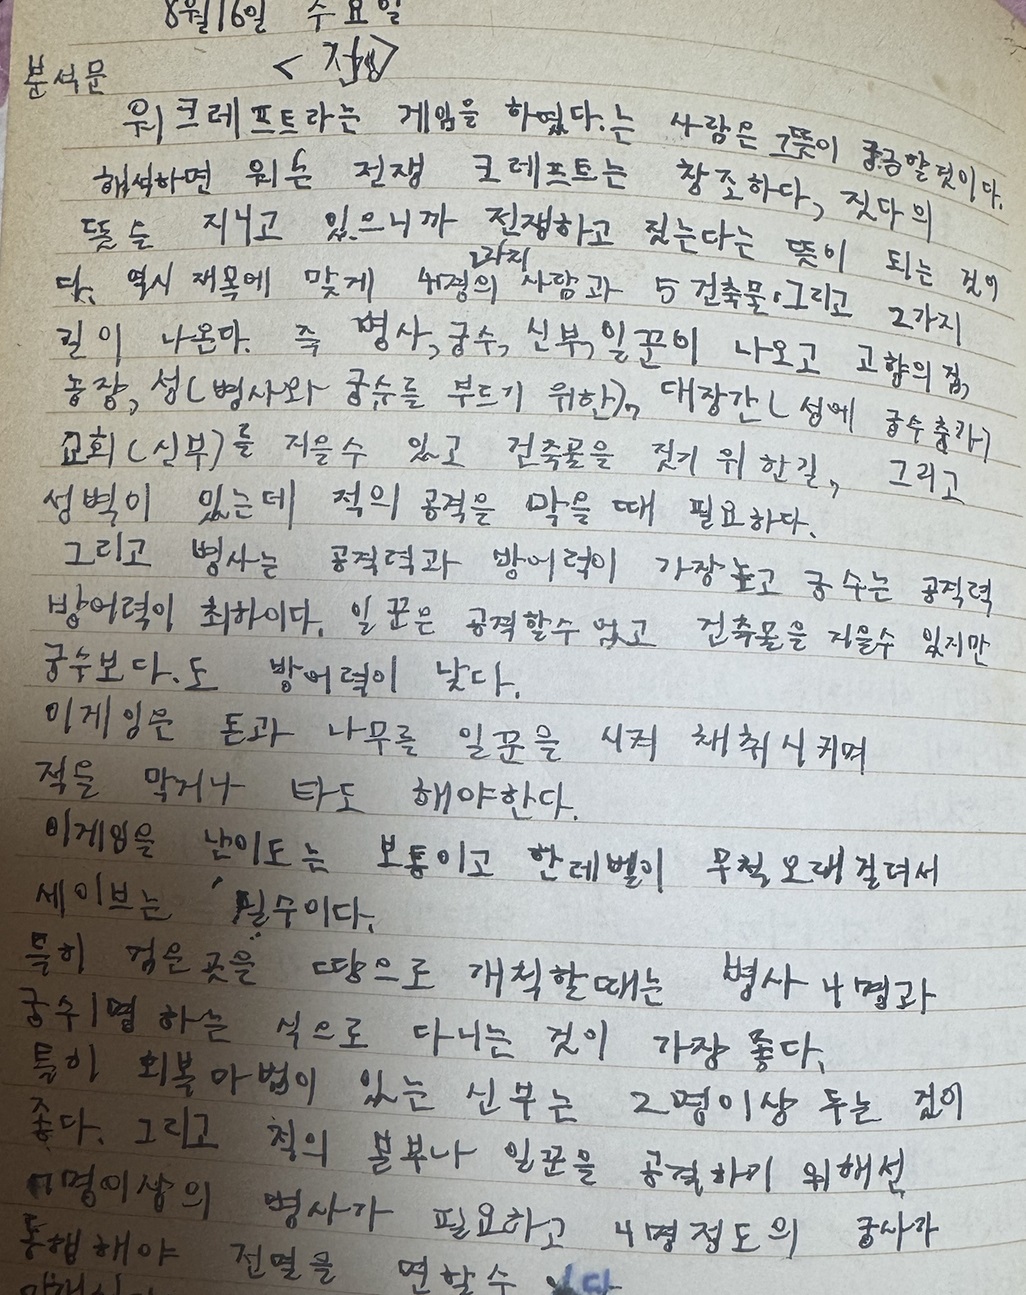 8월16일 수요일
분석문 < >
워크레프트라는 게임을 하였다.는 사람은 그뜻이 궁금할것이다.
해석하면 워는 전쟁 크레프트는 창조하다, 짓다의
뜻슬 지니고 있으니까 전쟁하고 짓는다는 뜻이 되는 것이
다. 역시 재목에 맞게 4가지의 사람과 5건축물.그리고 2가지
길이 나온다. 즉 병사,궁수,신부,일꾼이 나오고 고향의집,
농장, 성(병사와 궁슈를 부드기 위한), 대장간(성에 궁수충가)
교회(신부)를 지을수 있고 건축물을 짓기 위한길, 그리고
성벽이 있는데 적의 공격을 막을때 필요하다.
그리고 병사는 공격력과 방어력이 가장높고 궁수는 공격력
방어력이 최하이다. 일꾼은 공격할수 없고 건축물을 지을수 있지만
궁수보다.도 방어력이 낮다.
이게임은 돈과 나무를 일꾼을 시켜 채취시키며
적을 막거나 타도 해야한다.
이게임을 난이도는 보통이고 한레벨이 무척오래걸려서
세이브는 필수이다.
특히 검은곳을 땅으로 개척할때는 병사 4명과
궁수1명 하는 식으로 다니는 것이 가장 좋다.
특히 회복마법이 있는 신부는 2명이상 두는 것이
좋다. 그리고 적의 본부나 일꾼을 공격하기 위해선
명이상의 병사가 필요하고 4명정도의 궁사가
동행해야 전멸을 면할수 있다